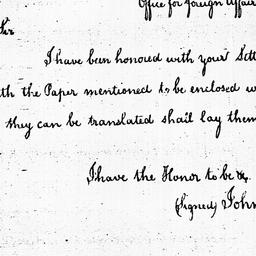 Office for foreign Affair
Sir
I have been honored with your Lett
th the Paper mentioned to be enclosed w
they can be translated shall lay them
I have the Honor to be &
(Signed) John